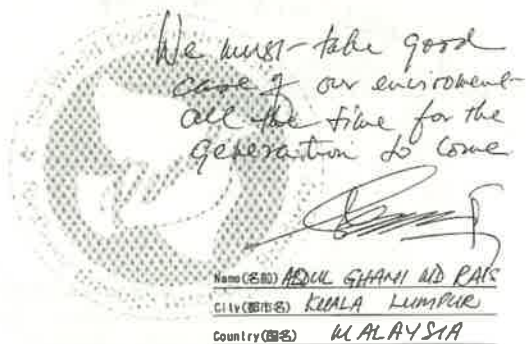 We must take good
care of our enviroment
all the time for the
generation to come
Name(名前) ABDUL GHANI MD RAIS
City(都市名) KUALA LUMPUR
Country(国名) MALAYSIA